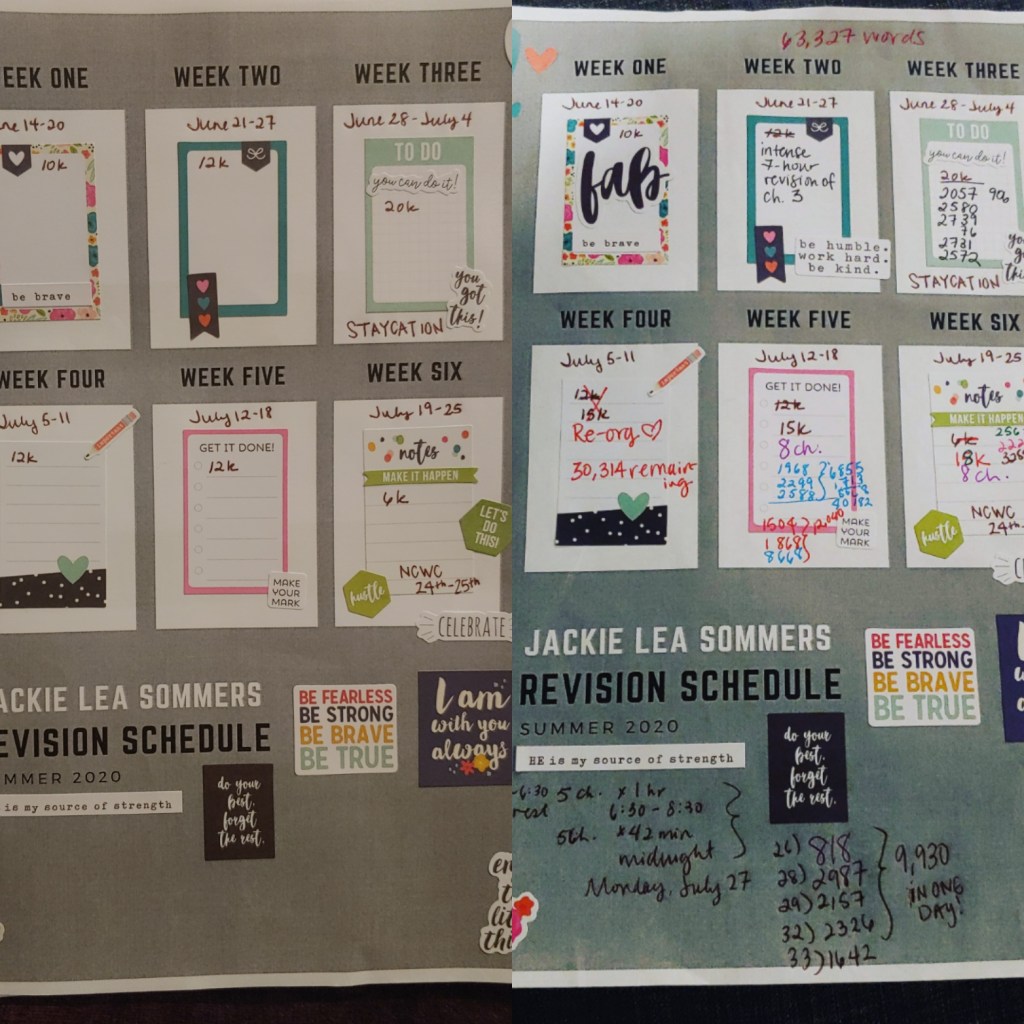 WEEK ONE
WEEK TWO
WEEK THREE
June 14-20
June 21-27
June 28-July 4
10k
12k
se
TO DO
you can do it!
20k
be brave
you got this!
STAYCATION
WEEK FOUR
WEEK FIVE
WEEK SIX
July 5-11
July 12-18
July 19-25
12k
GET IT DONE!
12k
notes
MAKE IT HAPPEN
6k
LET'S DO THIS!
MAKE YOUR MARK
hustle
NCWC
24th-25th
CELEBRATE
JACKIE LEA SOMMERS
REVISION SCHEDULE
SUMMER 2020
is my source of strength
BE FEARLESS
BE STRONG
BE BRAVE
BE TRUE
I am
with you
always
do your
best.
forget
the rest.
63,327 words
WEEK ONE
WEEK TWO
WEEK THREE
June 14-20
June 21-27
June 28-July 4
10k
fab
be brave
12k
se
intense
7-hour
revision of
ch. 3
be humble.
work hard.
be kind.
TO DO
you can do it!
20k
2057
2580
2739
76
2731
2572
STAYCATION
WEEK FOUR
WEEK FIVE
WEEK SIX
July 5-11
July 12-18
July 19-25
12k
15k
Re-org
30,314 remain
ing
GET IT DONE!
12k
15k
8 ch.
1968
2299
2588
1504
1868
8668
MAKE YOUR MARK
notes
MAKE IT HAPPEN
6k
18k
8 ch.
NCWC
24th-
hustle
JACKIE LEA SOMMERS
REVISION SCHEDULE
SUMMER 2020
HE is my source of strength
BE FEARLESS
BE STRONG
BE BRAVE
BE TRUE
do your
best.
forget
the rest.
5 ch. x 1 hr
6:30-8:30
5 ch. x 42 min
midnight
Monday, July 27
26) 818
28) 2987
29) 2157
32) 2326
33) 1642
9,930
IN ONE
DAY!